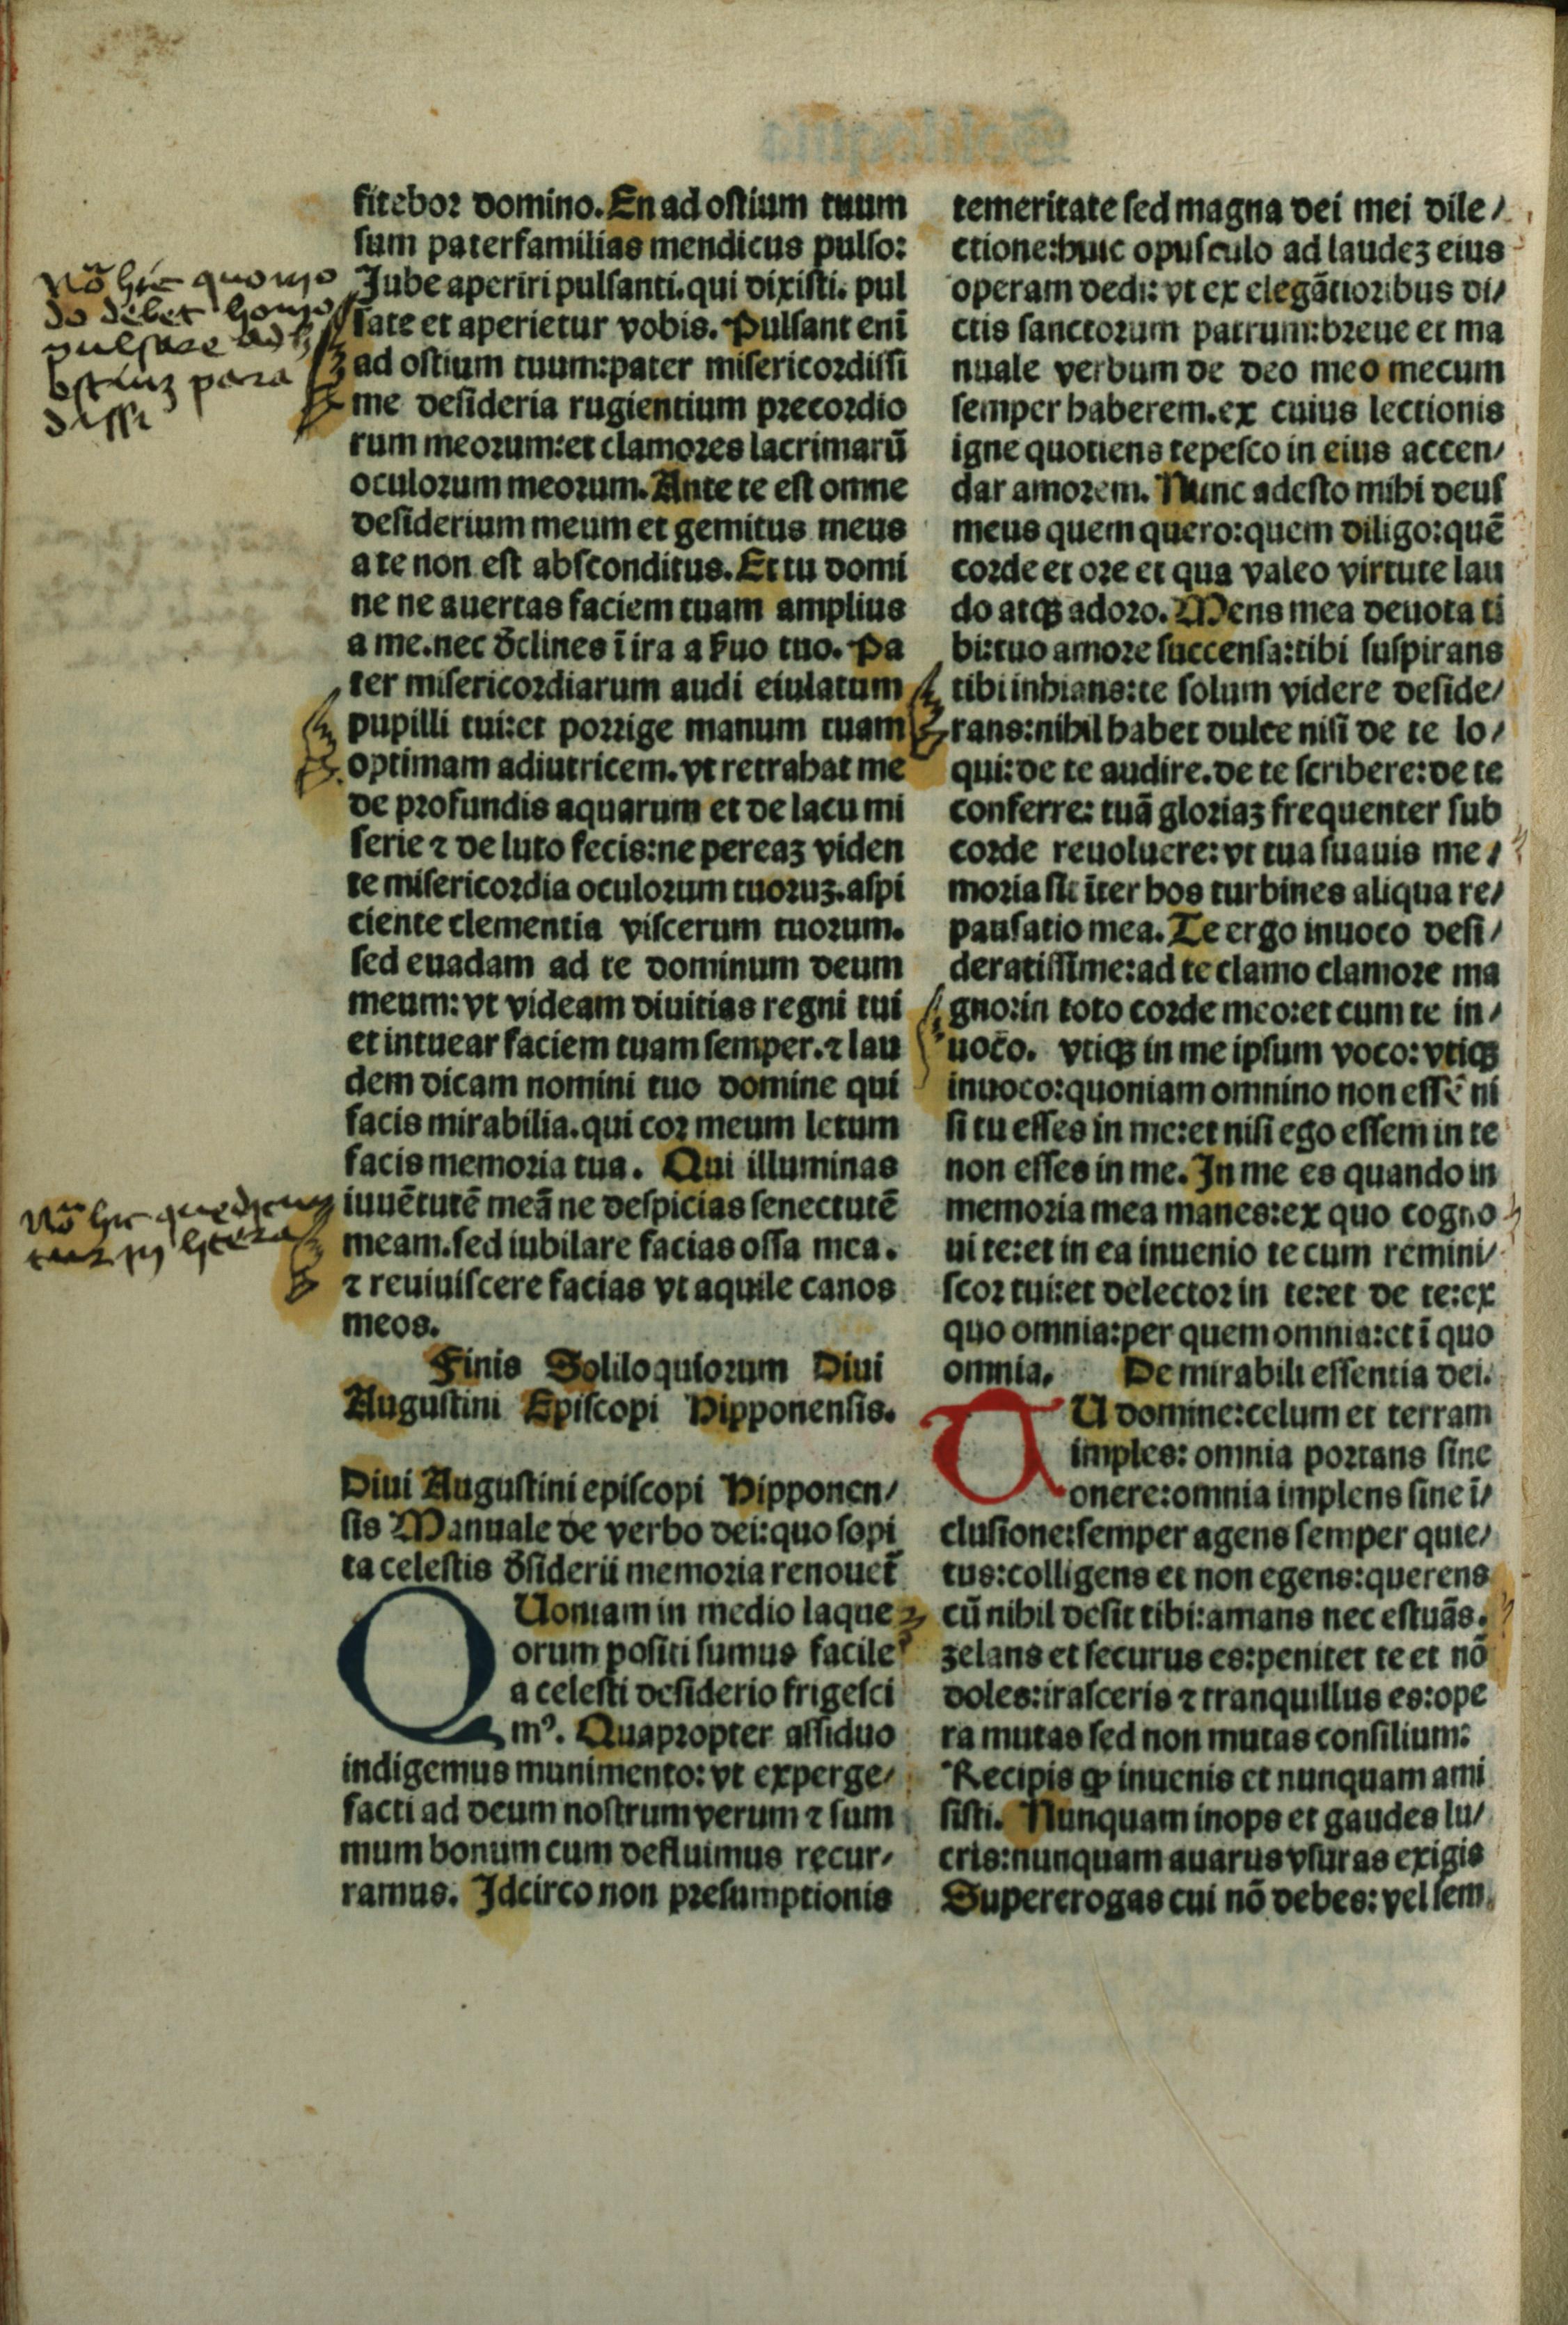 Nō hic quomo
do debet homo
pulsare ad
ostiuʒ para
dissi
Nō hic que dicun
tur in litera
fitebor domino. En ad ostium tuum
sum paterfamilias mendicus pulso:
Jube aperiri pulsanti. qui dixisti. pul
sate et aperietur vobis. Pulsant enī
ad ostium tuum: pater misericordissi
me desideria rugientium precordio
rum meorum: et clamores lacrimarū
oculorum meorum. Ante te est omne
desiderium meum et gemitus meus
a te non est absconditus. Et tu domi
ne ne auertas faciem tuam amplius
a me. nec d̄clines ī ira a s̄uo tuo. Pa
ter misericordiarum audi eiulatum
pupilli tui: et porrige manum tuam
optimam adiutricem. vt retrahat me
de profundis aquarum et de lacu mi
serie ⁊ de luto fecis: ne pereaʒ viden
te misericordia oculorum tuoruʒ. aspi
ciente clementia viscerum tuorum.
sed euadam ad te dominum deum
meum: vt videam diuitias regni tui
et intuear faciem tuam semper. ⁊ lau
dem dicam nomini tuo domine qui
facis mirabilia. qui cor meum letum
facis memoria tua. Qui illuminas
iuuētutē meā ne despicias senectutē
meam. sed iubilare facias ossa mea.
⁊ reuiuiscere facias vt aquile canos
meos.
Finis Soliloquiorum Diui
Augustini Episcopi Hipponensis.
Diui Augustini episcopi Hipponen/
sis Manuale de verbo dei: quo sopi
ta celestis d̄siderii memoria renouet̄
QUoniam in medio laque
orum positi sumus facile
a celesti desiderio frigesci
mꝰ. Quapropter assiduo
indigemus munimento: vt experge/
facti ad deum nostrum verum ⁊ sum
mum bonum cum defluimus recur/
ramus. Jdcirco non presumptionis
temeritate sed magna dei mei dile/
ctione: huic opusculo ad laudeʒ eius
operam dedi: vt ex elegātioribus di/
ctis sanctorum patrum: breue et ma
nuale verbum de deo meo mecum
semper haberem. ex cuius lectionis
igne quotiens tepesco in eius accen/
dar amorem. Nunc adesto mihi deus
meus quem quero: quem diligo: quē
corde et ore et qua valeo virtute lau
do atqꝫ adoro. Mens mea deuota ti
bi: tuo amore succensa: tibi suspirans
tibi inhians: te solum videre deside/
rans: nihil habet dulce nisi de te lo/
qui: de te audire. de te scribere: de te
conferre: tuā gloriaʒ frequenter sub
corde reuoluere: vt tua suauis me/
moria sit īter hos turbines aliqua re/
pausatio mea. Te ergo inuoco desi/
deratissime: ad te clamo clamore ma
gno: in toto corde meo: et cum te in/
uoco. vtiqꝫ in me ipsum voco: vtiqꝫ
inuoco: quoniam omnino non essē ni
si tu esses in me: et nisi ego essem in te
non esses in me. Jn me es quando in
memoria mea manes: ex quo cogno
ui te: et in ea inuenio te cum remini/
scor tui: et delector in te: et de te: ex
quo omnia: per quem omnia: et ī quo
omnia. De mirabili essentia dei.
TU domine: celum et terram
imples: omnia portans sine
onere: omnia implens sine ī/
clusione: semper agens semper quie/
tus: colligens et non egens: querens
cū nihil desit tibi: amans nec estuās.
zelans et securus es: penitet te et nō
doles: irasceris ⁊ tranquillus es: ope
ra mutas sed non mutas consilium:
Recipis qꝫ inuenis et nunquam ami
sisti. Nunquam inops et gaudes lu/
cris: nunquam auarus vsuras exigis
Supererogas cui nō debes: vel sem